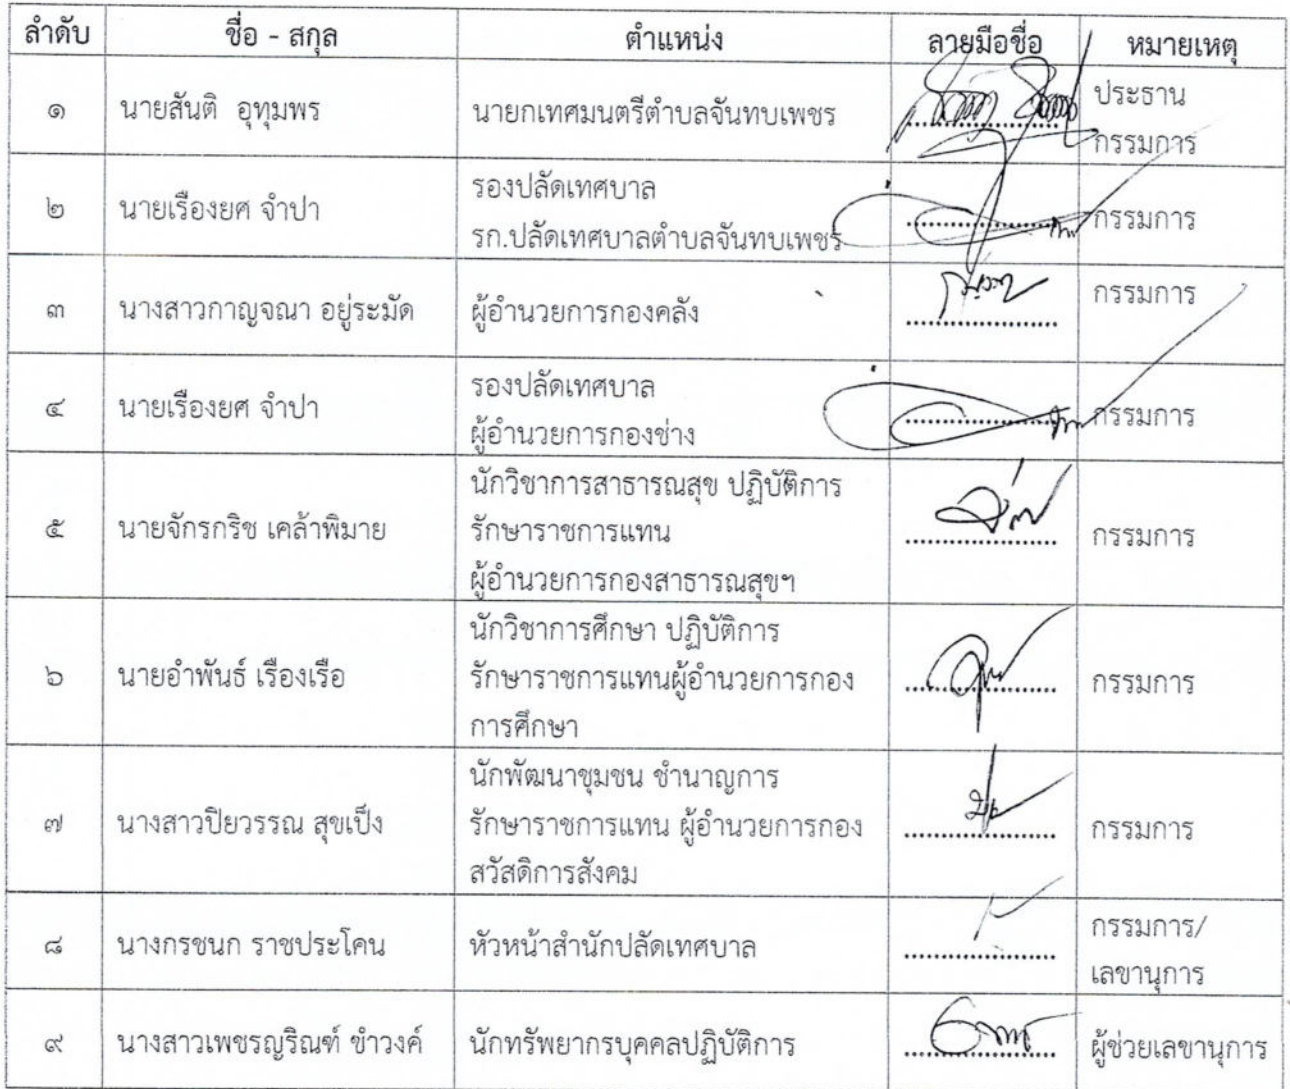 ลำดับ ชื่อ - สกุล ตำแหน่ง ลายมือชื่อ หมายเหตุ
๑ นายสันติ อุทุมพร นายกเทศมนตรีตำบลจันทบเพชร ประธาน
กรรมการ
๒ นายเรืองยศ จำปา รองปลัดเทศบาล กรรมการ
รก.ปลัดเทศบาลตำบลจันทบเพชร
๓ นางสาวกาญจณา อยู่ระมัด ผู้อำนวยการกองคลัง กรรมการ
๔ นายเรืองยศ จำปา รองปลัดเทศบาล กรรมการ
ผู้อำนวยการกองช่าง
๕ นายจักรกริช เคล้าพิมาย นักวิชาการสาธารณสุข ปฏิบัติการ กรรมการ
รักษาราชการแทน
ผู้อำนวยการกองสาธารณสุขฯ
๖ นายอำพันธ์ เรืองเรือ นักวิชาการศึกษา ปฏิบัติการ กรรมการ
รักษาราชการแทนผู้อำนวยการกอง
การศึกษา
๗ นางสาวปิยวรรณ สุขเป็ง นักพัฒนาชุมชน ชำนาญการ กรรมการ
รักษาราชการแทน ผู้อำนวยการกอง
สวัสดิการสังคม
๘ นางกรชนก ราชประโคน หัวหน้าสำนักปลัดเทศบาล กรรมการ/
เลขานุการ
๙ นางสาวเพชรญริณฑ์ ขำวงค์ นักทรัพยากรบุคคลปฏิบัติการ ผู้ช่วยเลขานุการ